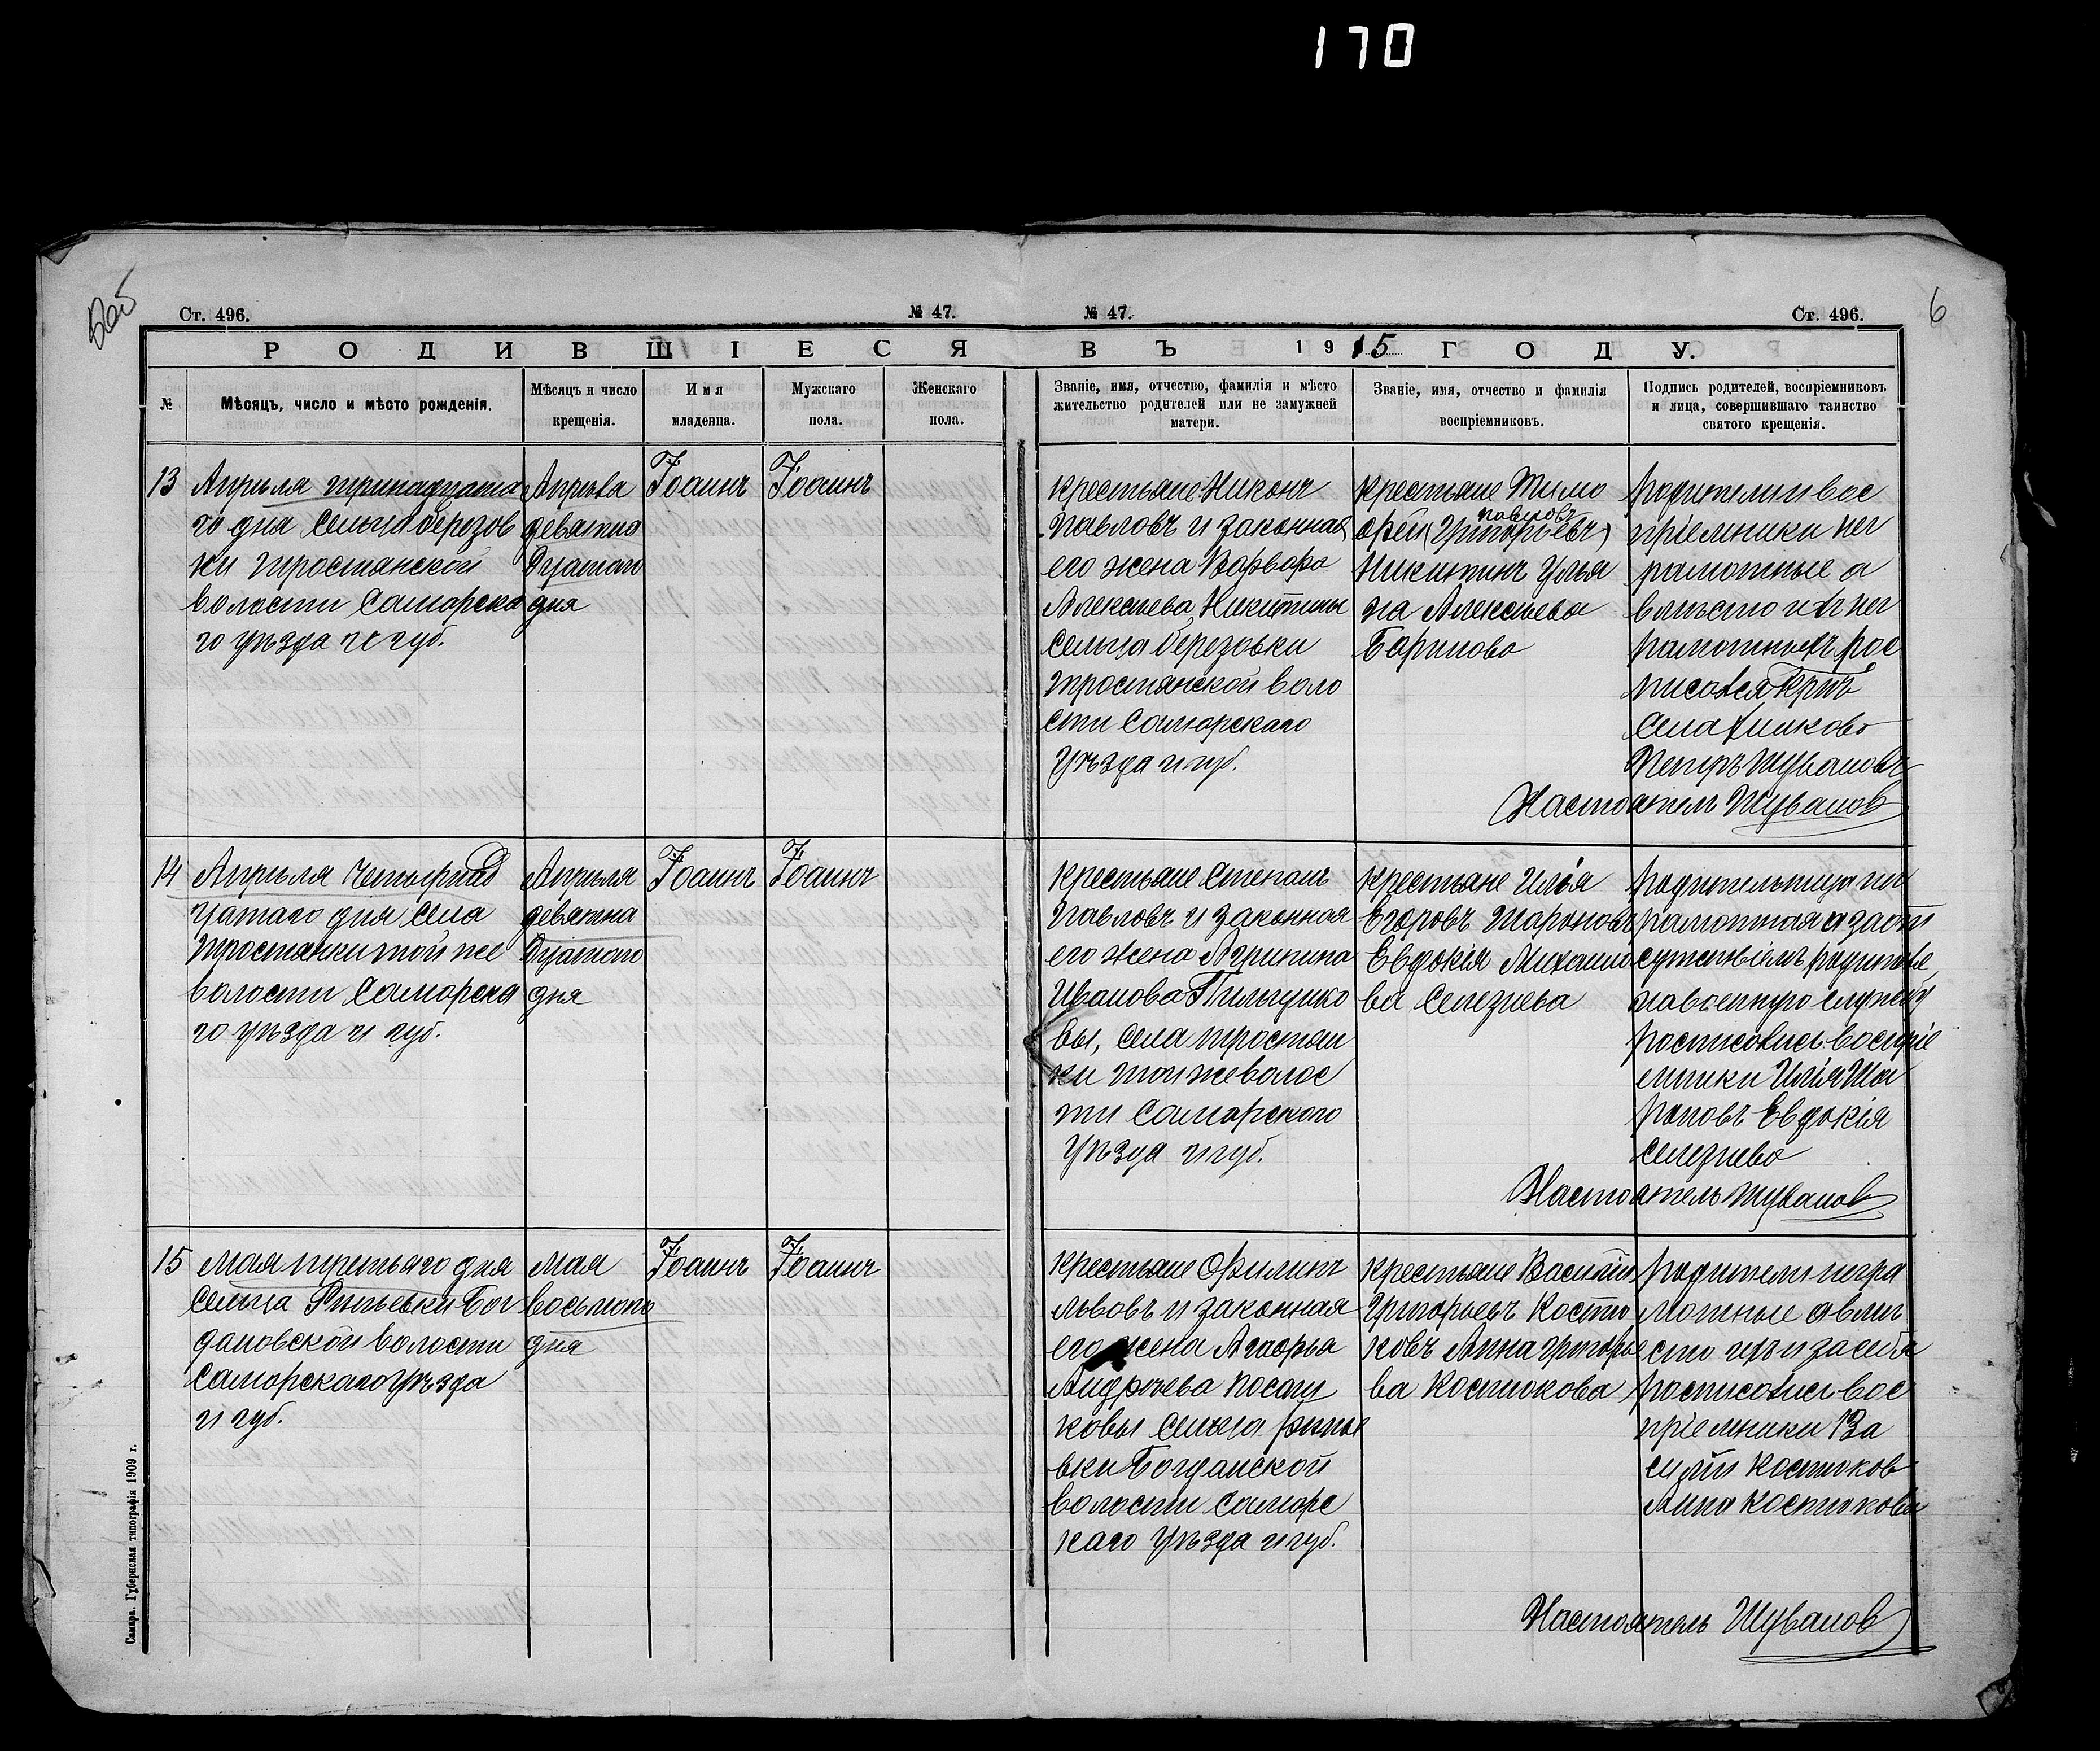 170
6
Ст. 496.
№ 47.
№ 47.
Ст. 496.
РОДИВШІЕСЯ
ВЪ 1915 ГОДУ.
№
Мѣсяцъ, число и мѣсто рожденія.
Мѣсяцъ и число
крещенія.
Имя
младенца.
Мужскаго
пола.
Женскаго
пола.
Званіе, имя, отчество, фамилія и мѣсто
жительство родителей или не замужней
матери.
Званіе, имя, отчество и фамилія
воспріемниковъ.
Подпись родителей, воспріемниковъ
и лица, совершившаго таинство
святого крещенія.
13
Апрыля тринадцата
го дня Сельца берозов
ки тростянской
волости Саморско
го уѣзда и губ.
Апрыля
девятна
дцатого
дня
Іоаннъ
Іоаннъ
крестьяне Никонъ
Павловъ и законная
его жена Ворвора
Алексѣева Никитины
Сельца березовки
тростянской воло
сти Саморскаго
Уѣзда и губ.
крестьяне Тимо
павловъ
фей (Григорьевъ)
Никитинъ Улья
на Алексѣева
Баринова
родители и вос
пріемники нег
рамотные а
вмѣсто ихъ нег
рамотныхъ рос
писался Крнъ
Села
Петръ Шувановъ
Настоятель Шувановъ
14
Апрыля Четырнад
цатаго дня Села
Тростянки той же
волости Саморска
го уѣзда и губ.
Апрыля
девятна
дцатого
дня
Іоаннъ
Іоаннъ
крестьяне Степанъ
Павловъ и законная
его жена Агрипина
Иванова Пильгуико
вы, Села тростян
ки той же волос
ти Саморского
Уѣзда и губ.
крестьяне Илья
Егоровъ Шароновъ
Евдокія Михаило
ва Селезнева
родительница нег
рамотная а за от
сутствіемъ родителе
на военную службу
росписолись воспріе
емники Илія Ша
роновъ Евдокія
Селезнева
Настоятель Шувановъ
15
Мая третьяго дня
Сельца Рыпьевки Бог
дановской волости
Саморскаго Уѣзда
и губ.
Мая
восьмого
дня
Іоаннъ
Іоаннъ
крестьяне Филипъ
Львовъ и законная
его жена Агафья
Андреева
ковы Сельца рыпье
вки Богданской
волости Саморс
каго Уѣзда и губ.
крестьяне Василій
Григорьевъ Костю
ковъ Анна Григорье
ва Костюкова
родители негра
мотные а вмѣ
сто ихъ и за себя
росписолись вос
пріемники Ва
силій Костюков
Анна Костюкова
Настоятель Шувановъ
Самара. Губернская типографія 1909 г.